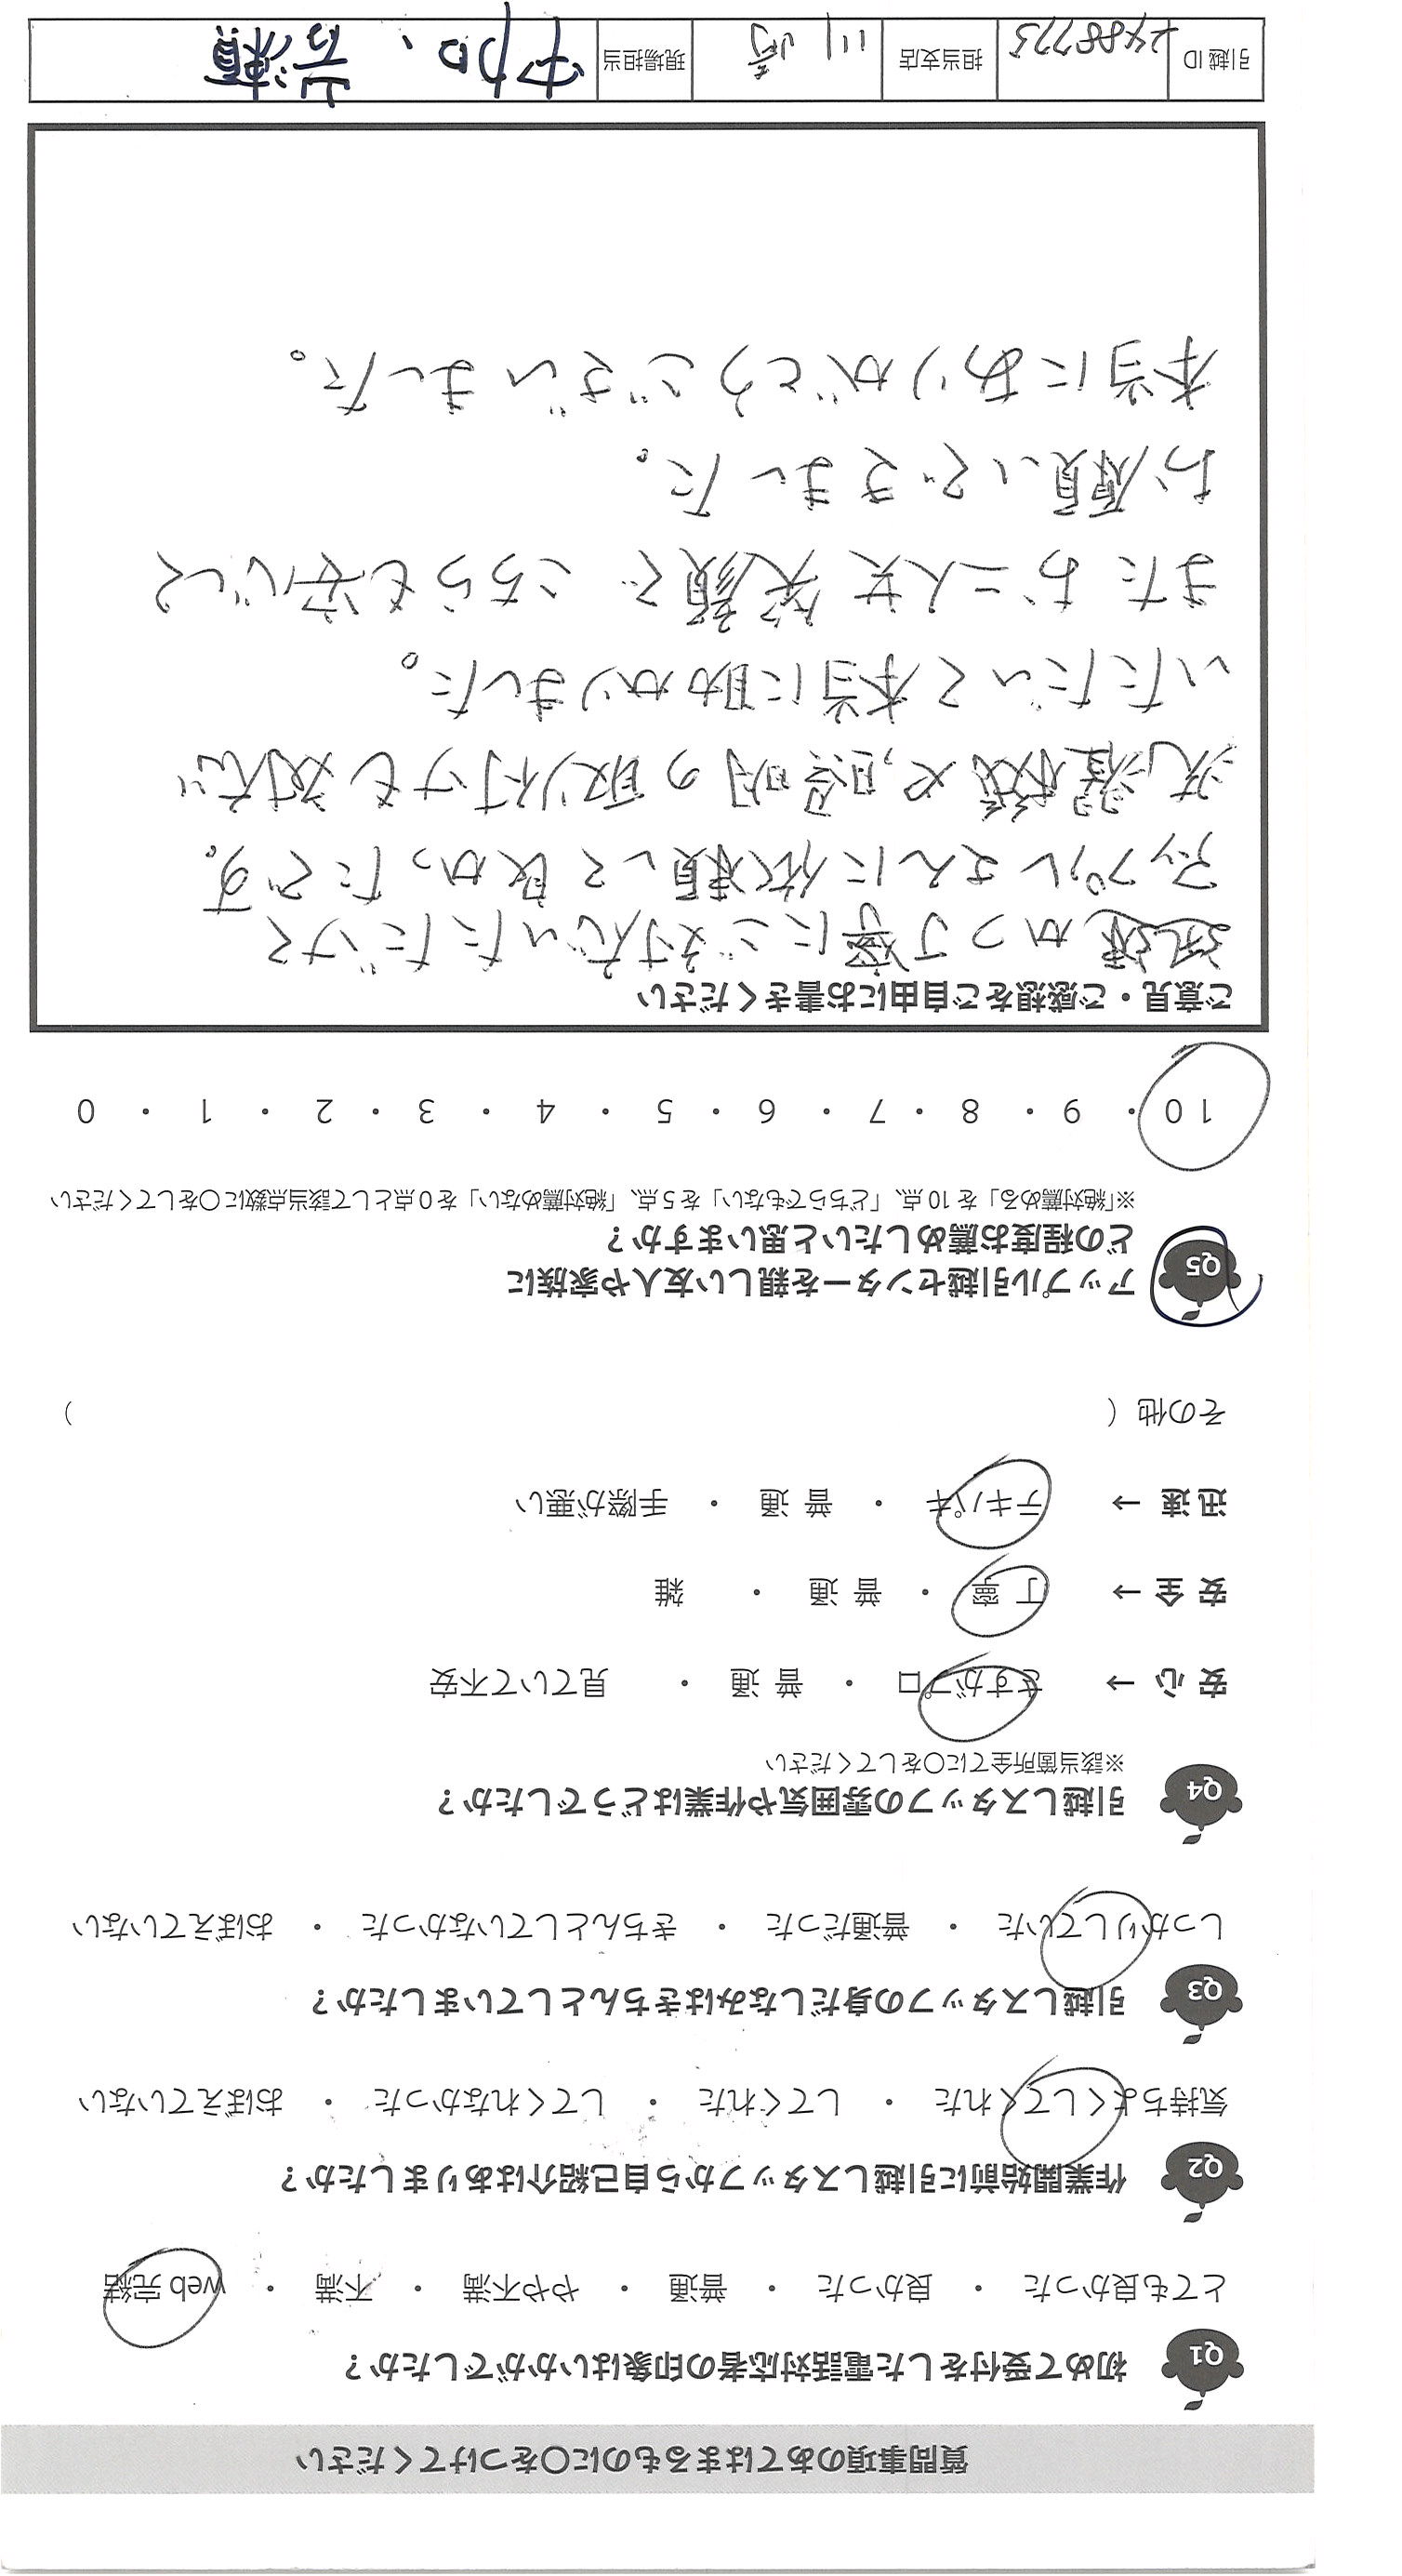 質問事項のあてはまるものに○をつけてください
Q1 初めて受付をした電話対応者の印象はいかがでしたか？
とても良かった ・ 良かった ・ 普通 ・ やや不満 ・ 不満 ・ web 完結
Q2 作業開始前に引越しスタッフから自己紹介はありましたか？
気持ちよくしてくれた ・ してくれた ・ してくれなかった ・ おぼえていない
Q3 引越しスタッフの身だしなみはきちんとしていましたか？
しっかりしていた ・ 普通だった ・ きちんとしていなかった ・ おぼえていない
Q4 引越しスタッフの雰囲気や作業はどうでしたか？
※該当箇所全てに○をしてください
安 心 → さすがプロ ・ 普 通 ・ 見ていて不安
安 全 → 丁 寧 ・ 普 通 ・ 雑
迅 速 → テキパキ ・ 普 通 ・ 手際が悪い
その他（ ）
Q5 アップル引越センターを親しい友人や家族に
どの程度お薦めしたいと思いますか？
※「絶対薦める」を 10 点、「どちらでもない」を 5 点、「絶対薦めない」を 0 点として該当点数に○をしてください
10 ・ 9 ・ 8 ・ 7 ・ 6 ・ 5 ・ 4 ・ 3 ・ 2 ・ 1 ・ 0
ご意見・ご感想をご自由にお書きください
迅速かつ丁寧にご対応いただけて
アップルさんに依頼して良かったです。
洗濯機や照明の取り付けも対応
いただいて本当に助かりました。
またお二人共笑顔で こちらも安心して
お願いできました。
本当にありがとうございました。
引越 ID 2488775 担当支店 川崎 現場担当 中加、岩瀬